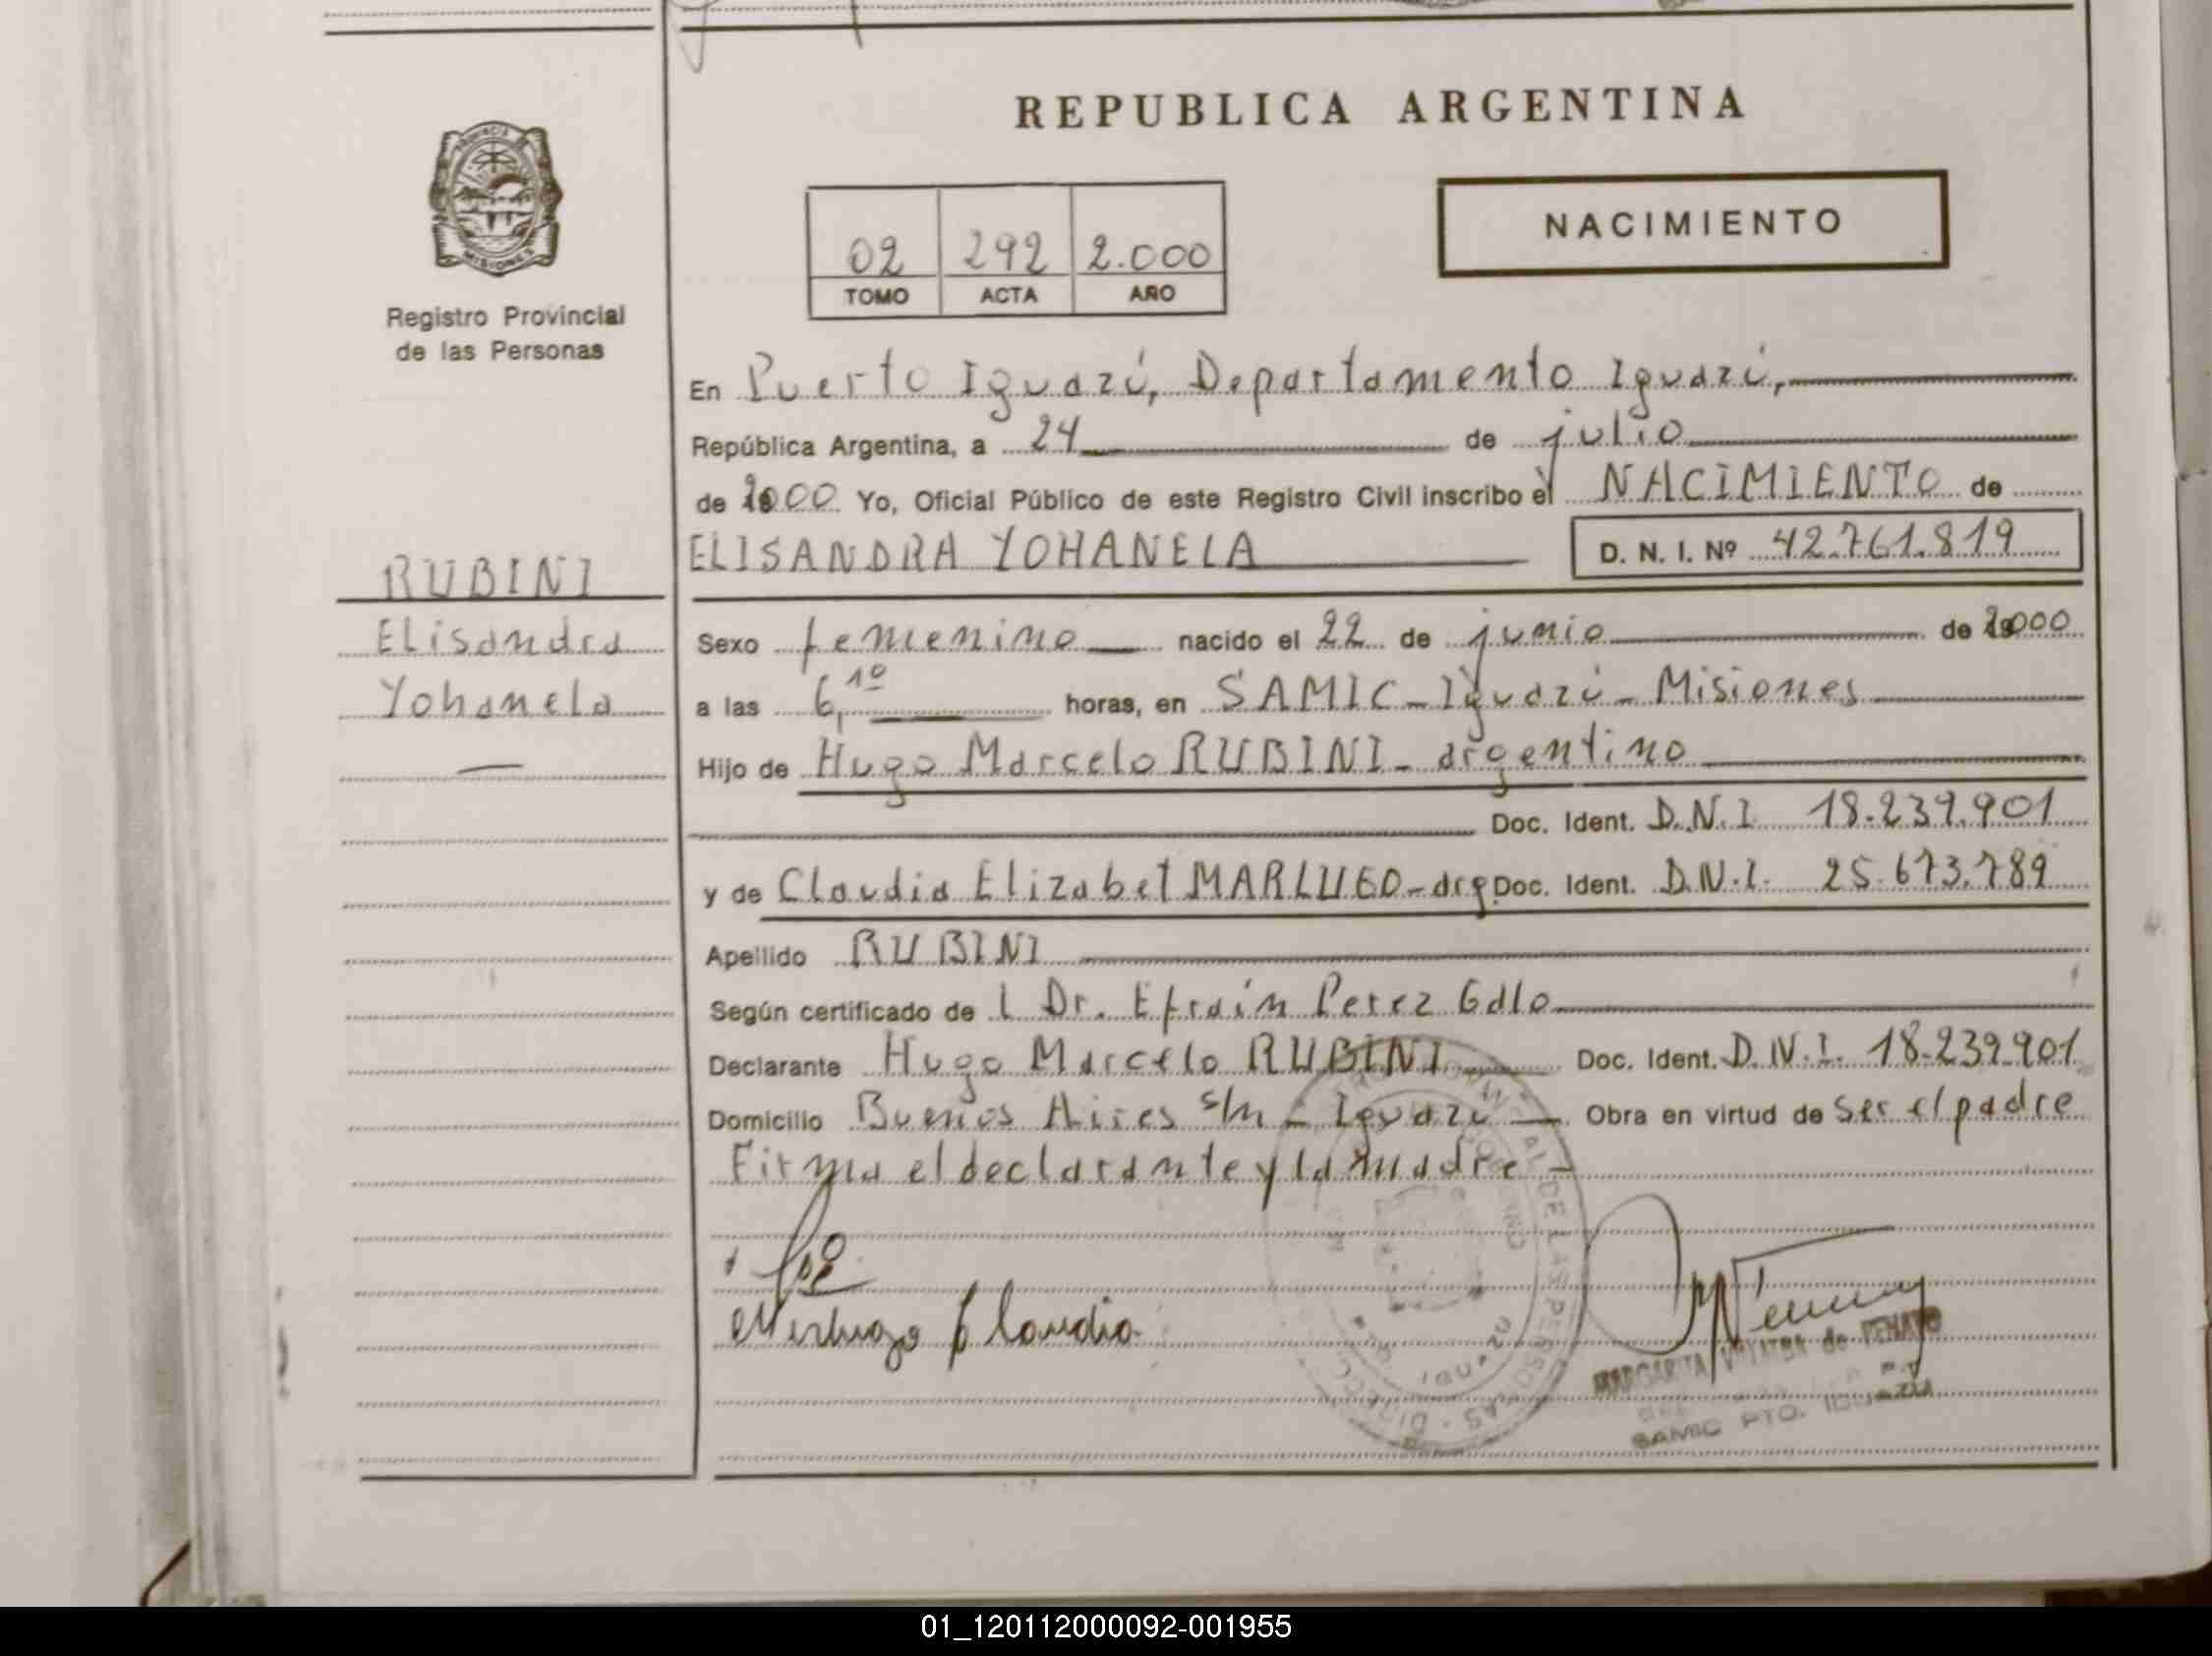 REPUBLICA ARGENTINA
PROVINCIA DE
MISIONES
Registro Provincial
de las Personas
NACIMIENTO
02 292 2.000
TOMO ACTA AÑO
En Puerto Iguazú, Departamento Iguazú,
República Argentina, a 24 de julio
de 2000 Yo, Oficial Público de este Registro Civil inscribo el NACIMIENTO de
ELISANDRA YOHANELA D. N. I. Nº 42.761.819
RUBINI
Elisandra
Yohanela
Sexo femenino nacido el 22 de junio de 2000
a las 6,10 horas, en SAMIC - Iguazú - Misiones
Hijo de Hugo Marcelo RUBINI - argentino
Doc. Ident. D.N.I 18.239.901
y de Claudia Elizabet - arg Doc. Ident. D.N.I. 25.673.789
Apellido RUBINI
Según certificado de l Dr. Efraín Perez Galo
Declarante Hugo Marcelo RUBINI Doc. Ident. D.N.I. 18.239.901
Domicilio Buenos Aires s/n - Iguazú - Obra en virtud de ser el padre
Firma el declarante y la madre -
Claudia
MARGARITA de PENAYO
SAMIC PTO. IGUAZU
01_120112000092-001955